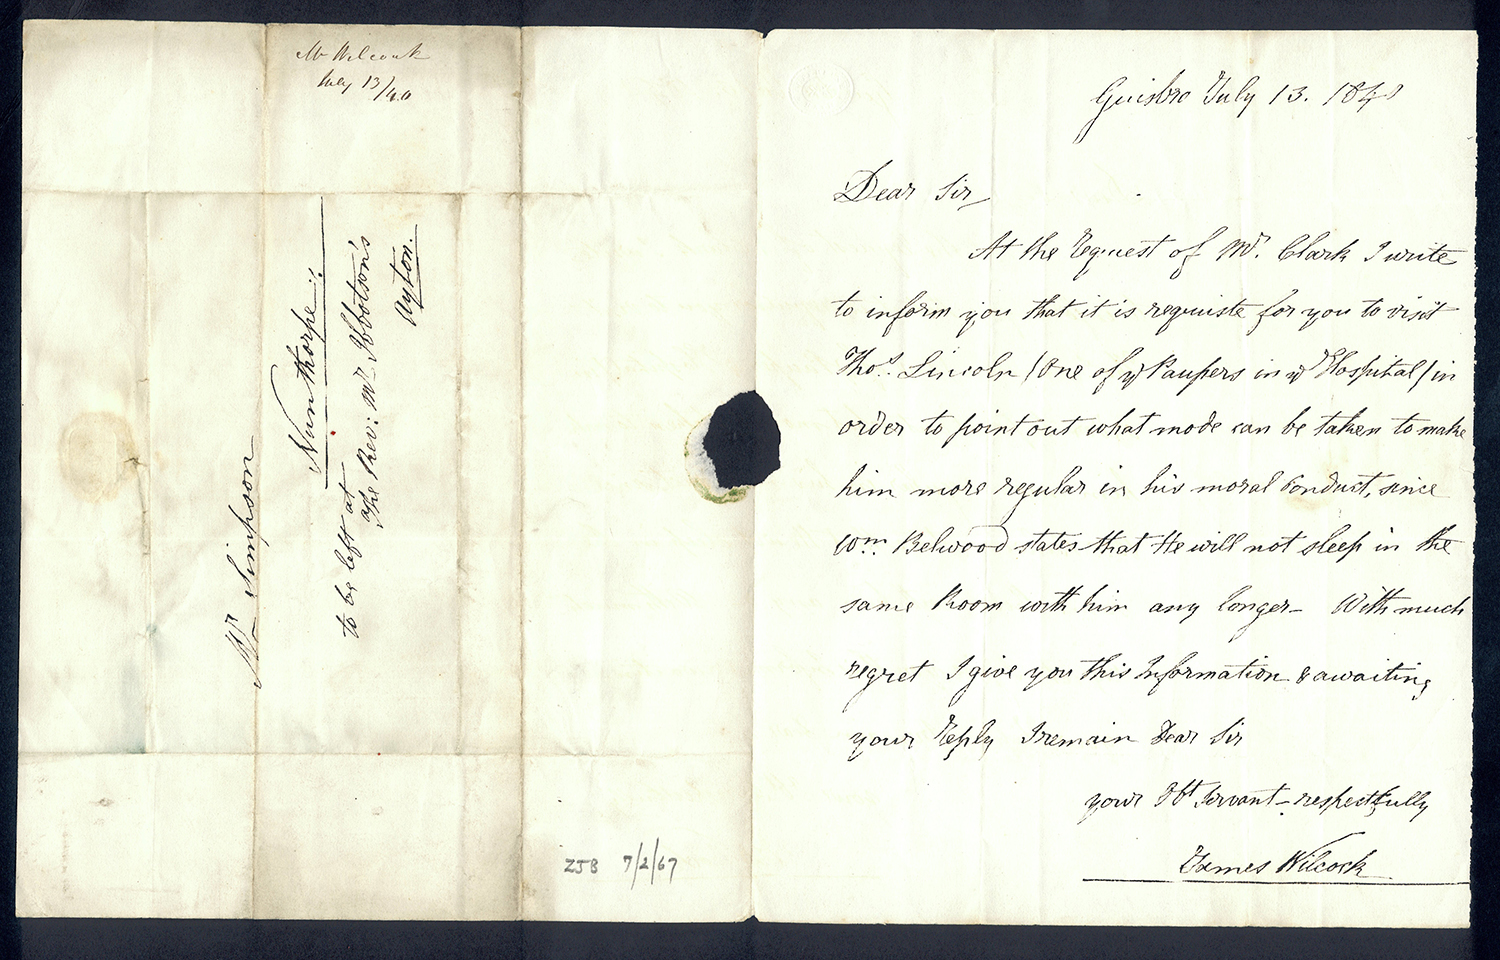 Mr Wilcock
July 13/40
Mr Simpson
Nunthorpe:
to be left at
The Rev: Mr. Ibbotson's
Ayton.
ZJB 7/2/67
Guisbro July 13. 1840
Dear Sir
At the Request of Mr. Clark I write
to inform you that it is requiste for you to visit
Thos. Lincoln / One of ye Paupers in ye Hospital / in
order to point out what mode can be taken to make
him more regular in his moral Conduct, since
Wm. Belwood states that He will not sleep in the
same Room with him any longer - With much
regret I give you this Information & awaiting
your Reply I remain Dear Sir
your Obt Servant - respectfully
James Wilcock